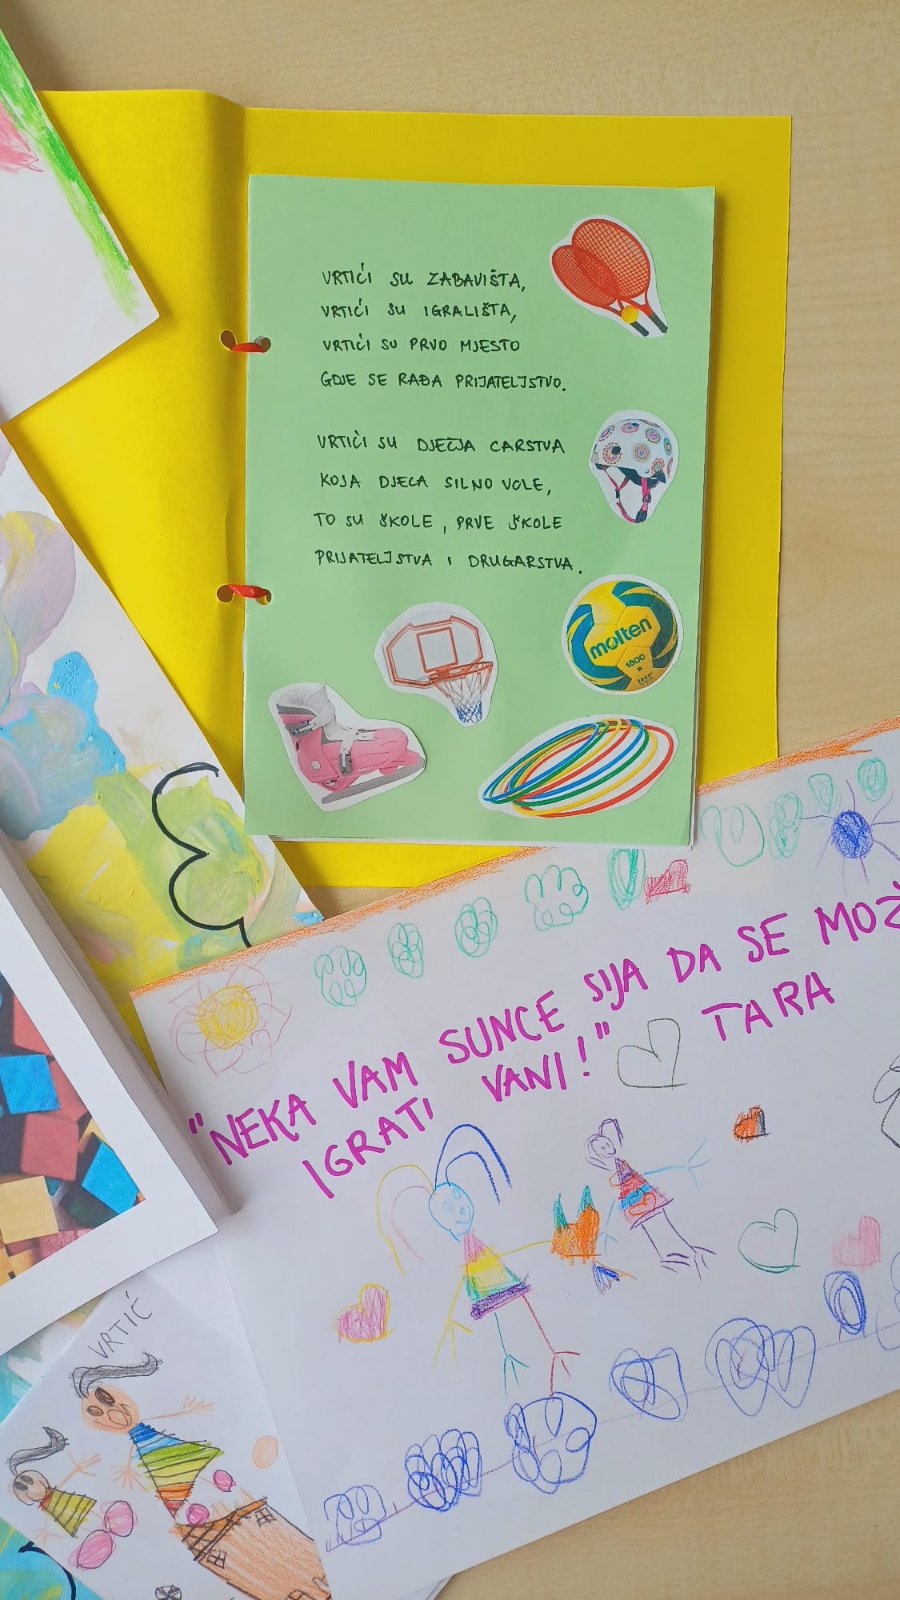 VRTIĆI SU ZABAVIŠTA,
VRTIĆI SU IGRALIŠTA,
VRTIĆI SU PRVO MJESTO
GDJE SE RAĐA PRIJATELJSTVO.
VRTIĆI SU DJEČJA CARSTVA
KOJA DJECA SILNO VOLE,
TO SU ŠKOLE, PRVE ŠKOLE
PRIJATELJSTVA I DRUGARSTVA.
molten
1800
"NEKA VAM SUNCE SIJA DA SE MOŽ
IGRATI VANI!" TARA
VRTIĆ